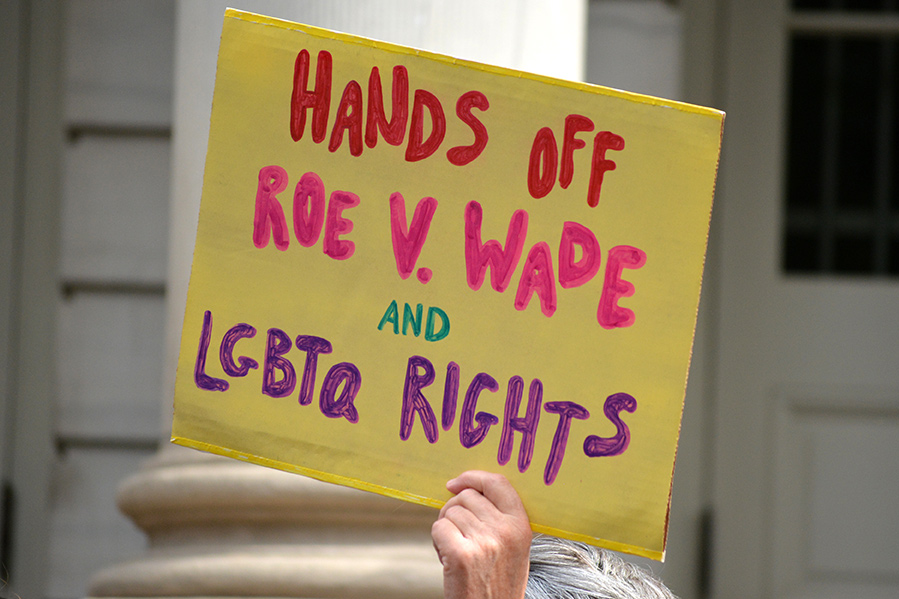 HANDS OFF
ROE V. WADE
AND
LGBTQ RIGHTS